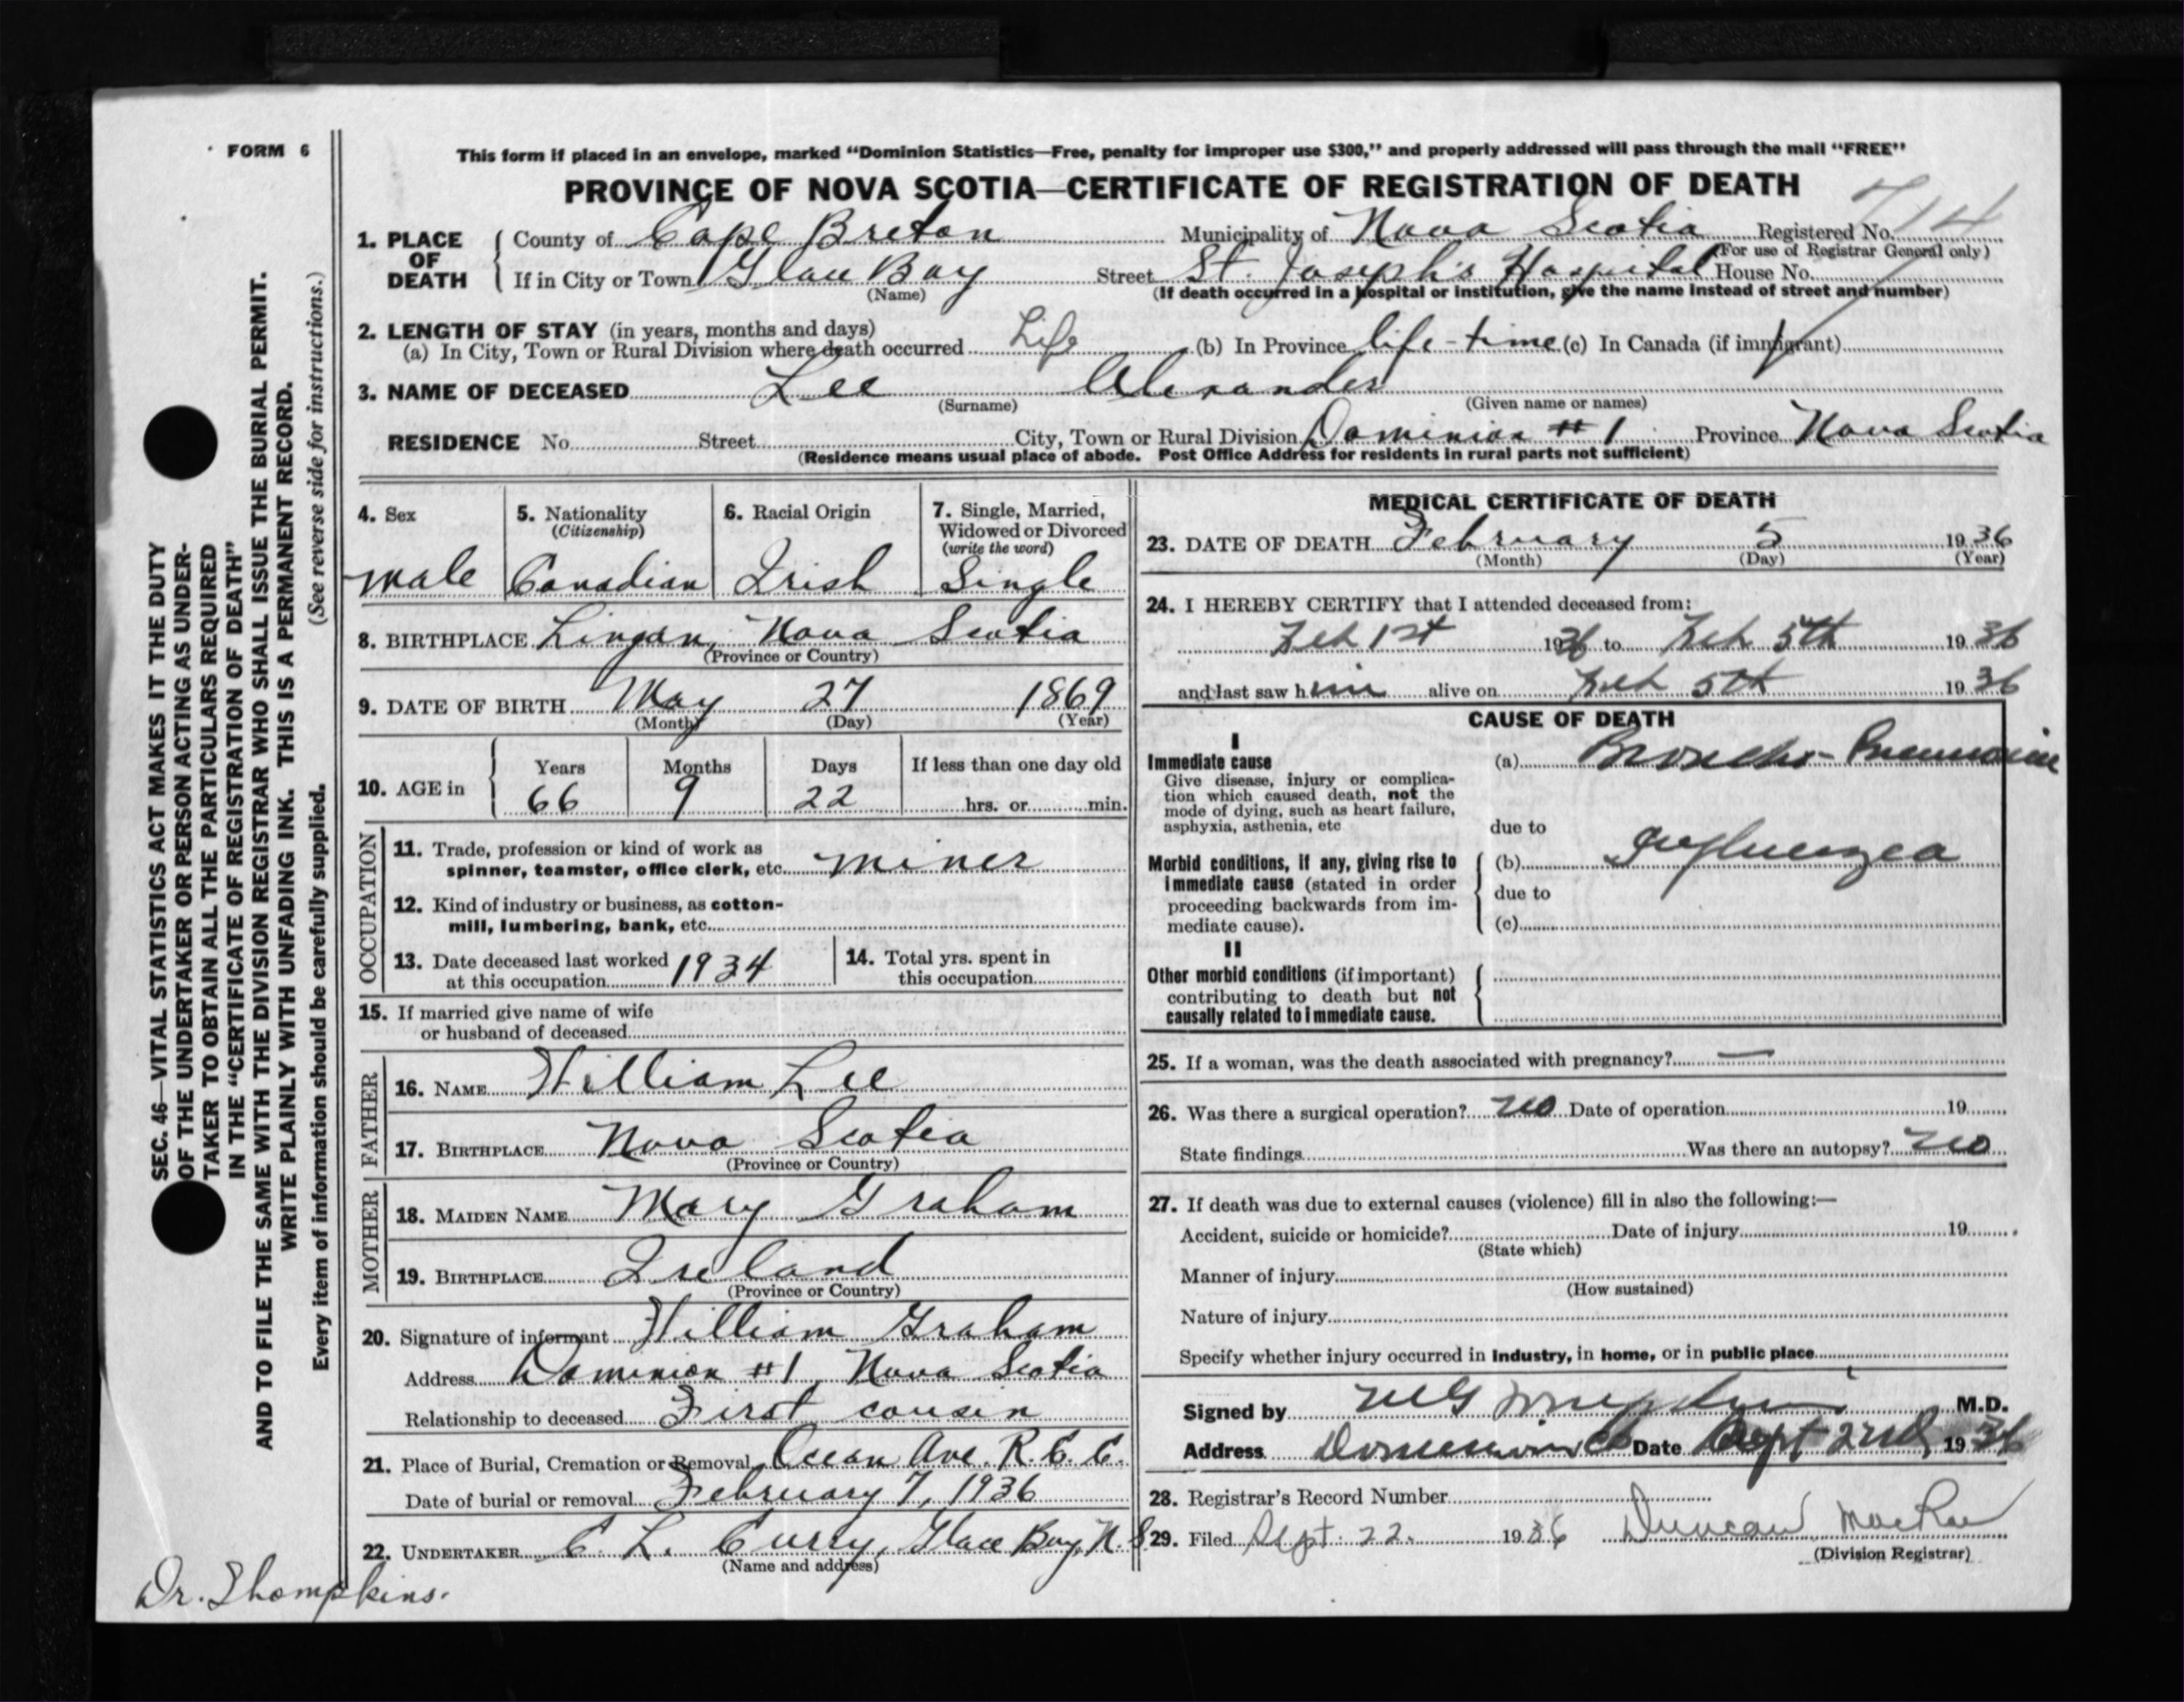 FORM 6
This form if placed in an envelope, marked “Dominion Statistics—Free, penalty for improper use $300,” and properly addressed will pass through the mail “FREE”
PROVINCE OF NOVA SCOTIA—CERTIFICATE OF REGISTRATION OF DEATH
714
1. PLACE OF DEATH { County of Cape Breton Municipality of Nova Scotia Registered No.
(For use of Registrar General only)
If in City or Town Glace Bay Street St. Joseph's Hospital House No.
(Name) (If death occurred in a hospital or institution, give the name instead of street and number)
2. LENGTH OF STAY (in years, months and days)
(a) In City, Town or Rural Division where death occurred Life (b) In Province life-time (c) In Canada (if immigrant)
3. NAME OF DECEASED Lee Alexander
(Surname) (Given name or names)
RESIDENCE No. Street City, Town or Rural Division Dominion #1 Province Nova Scotia
(Residence means usual place of abode. Post Office Address for residents in rural parts not sufficient)
4. Sex 5. Nationality (Citizenship) 6. Racial Origin 7. Single, Married, Widowed or Divorced (write the word)
male Canadian Irish Single
8. BIRTHPLACE Lingan, Nova Scotia
(Province or Country)
9. DATE OF BIRTH May 27 1869
(Month) (Day) (Year)
10. AGE in { Years Months Days If less than one day old
66 9 22 hrs. or min.
OCCUPATION
11. Trade, profession or kind of work as
spinner, teamster, office clerk, etc. miner
12. Kind of industry or business, as cotton-
mill, lumbering, bank, etc.
13. Date deceased last worked at this occupation 1934 14. Total yrs. spent in this occupation
15. If married give name of wife
or husband of deceased
FATHER
16. NAME William Lee
17. BIRTHPLACE Nova Scotia
(Province or Country)
MOTHER
18. MAIDEN NAME Mary Graham
19. BIRTHPLACE Ireland
(Province or Country)
20. Signature of informant William Graham
Address Dominion #1, Nova Scotia
Relationship to deceased First cousin
21. Place of Burial, Cremation or Removal Ocean Ave. R.C.C.
Date of burial or removal February 7, 1936
22. UNDERTAKER C. L. Curry, Glace Bay, N.S.
(Name and address)
MEDICAL CERTIFICATE OF DEATH
23. DATE OF DEATH February 5 1936
(Month) (Day) (Year)
24. I HEREBY CERTIFY that I attended deceased from:
Feb 1st 1936 to Feb 5th 1936
and last saw him alive on Feb 5th 1936
CAUSE OF DEATH
I
Immediate cause (a) Broncho-Pneumonia
Give disease, injury or complica-
tion which caused death, not the
mode of dying, such as heart failure,
asphyxia, asthenia, etc due to
Morbid conditions, if any, giving rise to { (b) Influenza
immediate cause (stated in order due to
proceeding backwards from im-
mediate cause). (c)
II
Other morbid conditions (if important) {
contributing to death but not
causally related to immediate cause.
25. If a woman, was the death associated with pregnancy? —
26. Was there a surgical operation? no Date of operation 19
State findings Was there an autopsy? no
27. If death was due to external causes (violence) fill in also the following:—
Accident, suicide or homicide? Date of injury 19
(State which)
Manner of injury
(How sustained)
Nature of injury
Specify whether injury occurred in industry, in home, or in public place
Signed by M.D.
Address Dominion CB Date Sept 22nd 1936
28. Registrar's Record Number
29. Filed Sept. 22. 1936 Duncan MacRae
(Division Registrar)
SEC. 46—VITAL STATISTICS ACT MAKES IT THE DUTY
OF THE UNDERTAKER OR PERSON ACTING AS UNDER-
TAKER TO OBTAIN ALL THE PARTICULARS REQUIRED
IN THE “CERTIFICATE OF REGISTRATION OF DEATH”
AND TO FILE THE SAME WITH THE DIVISION REGISTRAR WHO SHALL ISSUE THE BURIAL PERMIT.
WRITE PLAINLY WITH UNFADING INK. THIS IS A PERMANENT RECORD.
Every item of information should be carefully supplied. (See reverse side for instructions.)
Dr. Thompkins.